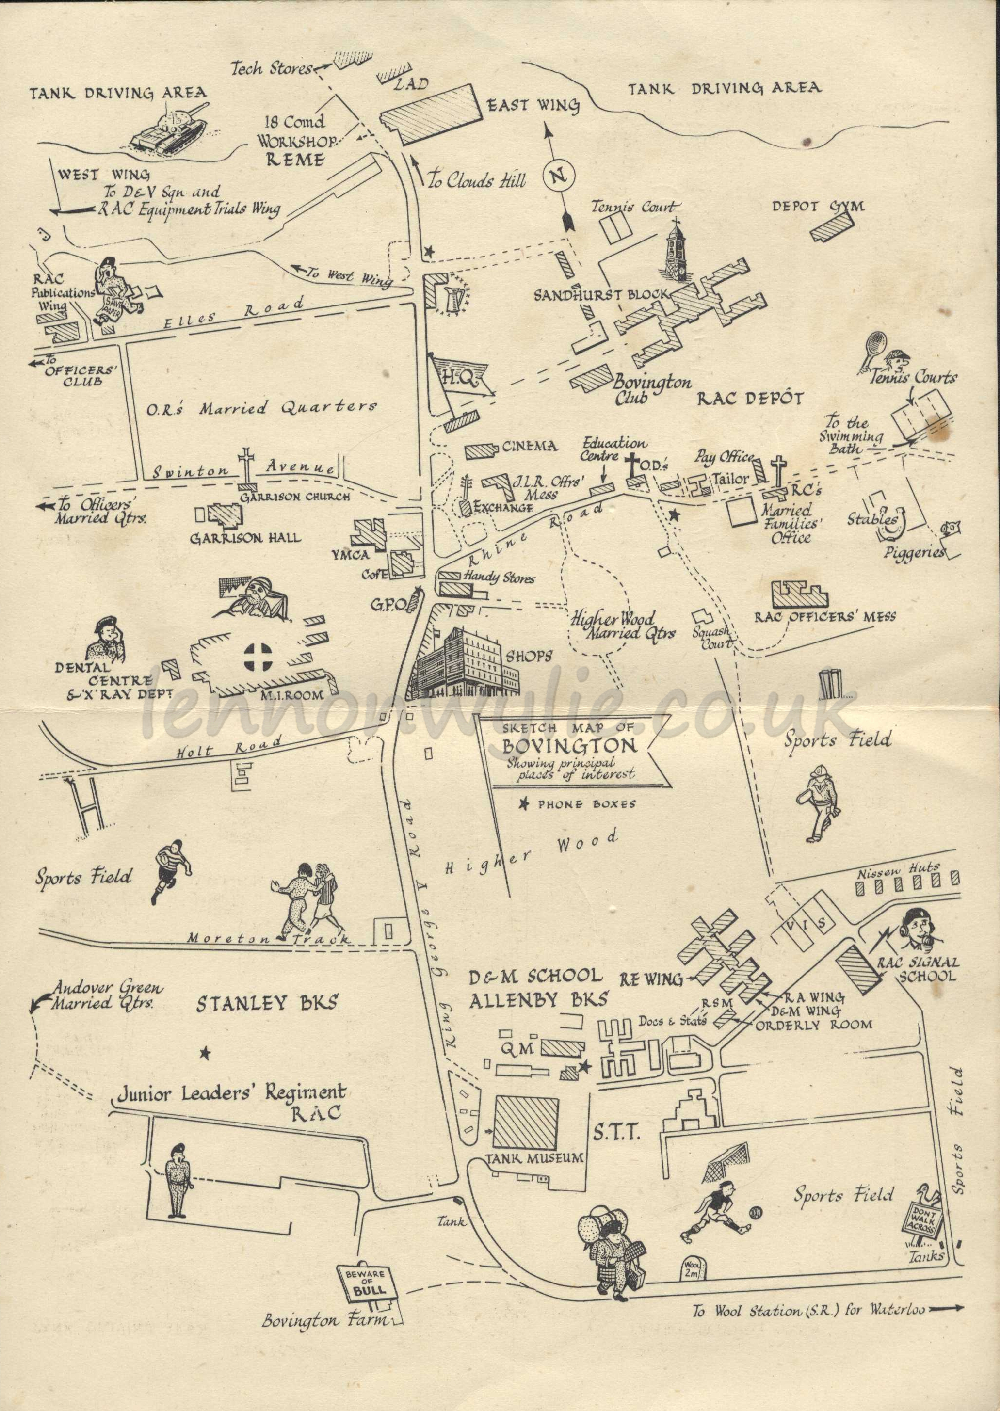 Tech Stores
LAD
TANK DRIVING AREA
EAST WING
TANK DRIVING AREA
18 Comd
WORKSHOP
REME
N
WEST WING
To D&V Sqn and
RAC Equipment Trials Wing
To Clouds Hill
Tennis Court
DEPOT GYM
To West Wing
RAC
Publications
Wing
SANDHURST BLOCK
Elles Road
To
OFFICERS'
CLUB
H.Q.
Bovington
Club
RAC DEPÔT
Tennis Courts
O.R.'s Married Quarters
To the
Swimming
Bath
CINEMA
Education
Centre
O.D.'s
Pay Office
Tailor
R.C's
Swinton Avenue
GARRISON CHURCH
J.L.R. Offrs'
Mess
EXCHANGE
To Officers'
Married Qtrs.
GARRISON HALL
Rhine Road
Married
Families'
Office
Stables
Piggeries
YMCA
C of E
Handy Stores
G.P.O.
Higher Wood
Married Qtrs
RAC OFFICERS' MESS
Squash
Court
DENTAL
CENTRE
& 'X' RAY DEPT
M.I. ROOM
SHOPS
lennonwylie.co.uk
SKETCH MAP OF
BOVINGTON
Showing principal
places of interest
PHONE BOXES
Sports Field
Holt Road
King George V Road
Higher Wood
Sports Field
Nissen Huts
VIS
Moreton Track
RAC SIGNAL
SCHOOL
D&M SCHOOL
ALLENBY BKS
RE WING
Andover Green
Married Qtrs.
STANLEY BKS
RSM
RA WING
D&M WING
ORDERLY ROOM
Docs & Stats
QM
Junior Leaders' Regiment
RAC
S.T.T.
TANK MUSEUM
Sports Field
Sports Field
DONT
WALK
ACROSS
Tank
Tanks
Wool
2m
BEWARE
OF
BULL
Bovington Farm
To Wool Station (S.R.) for Waterloo